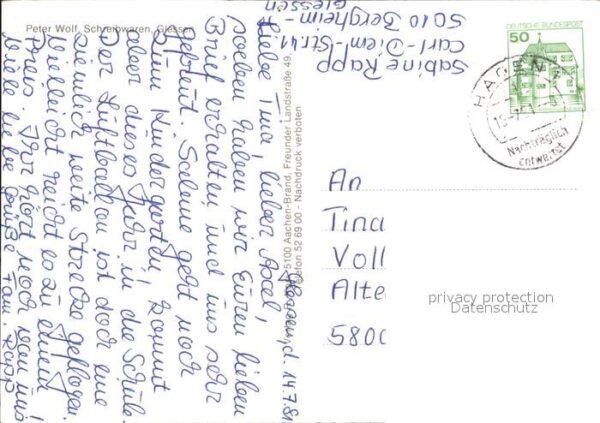 Peter Wolf, Schreibwaren, Glessen
Sabine Rapp
Carl-Diem-Str. 41
5010 Bergheim-
Glessen
DEUTSCHE BUNDESPOST
50
HAGEN 1
Nachträglich
entwertet
5100 Aachen-Brand, Freunder Landstraße 49,
Telefon 52 69 00 - Nachdruck verboten
d. 14.7.81
Liebe Tina, lieber Axel,
soeben haben wir Euren lieben
Brief erhalten und uns sehr
gefreut. Sabine geht noch
zum Kindergarten, kommt
aber dieses Jahr in die Schule.
Der Luftballon ist doch eine
ziemlich weite Strecke geflogen.
Vielleicht reicht es zu einem
Preis. Ihr hört noch von uns!
Viele liebe Grüße Fam. Rapp
An
Tina
Voll
Alte
5800
privacy protection
Datenschutz